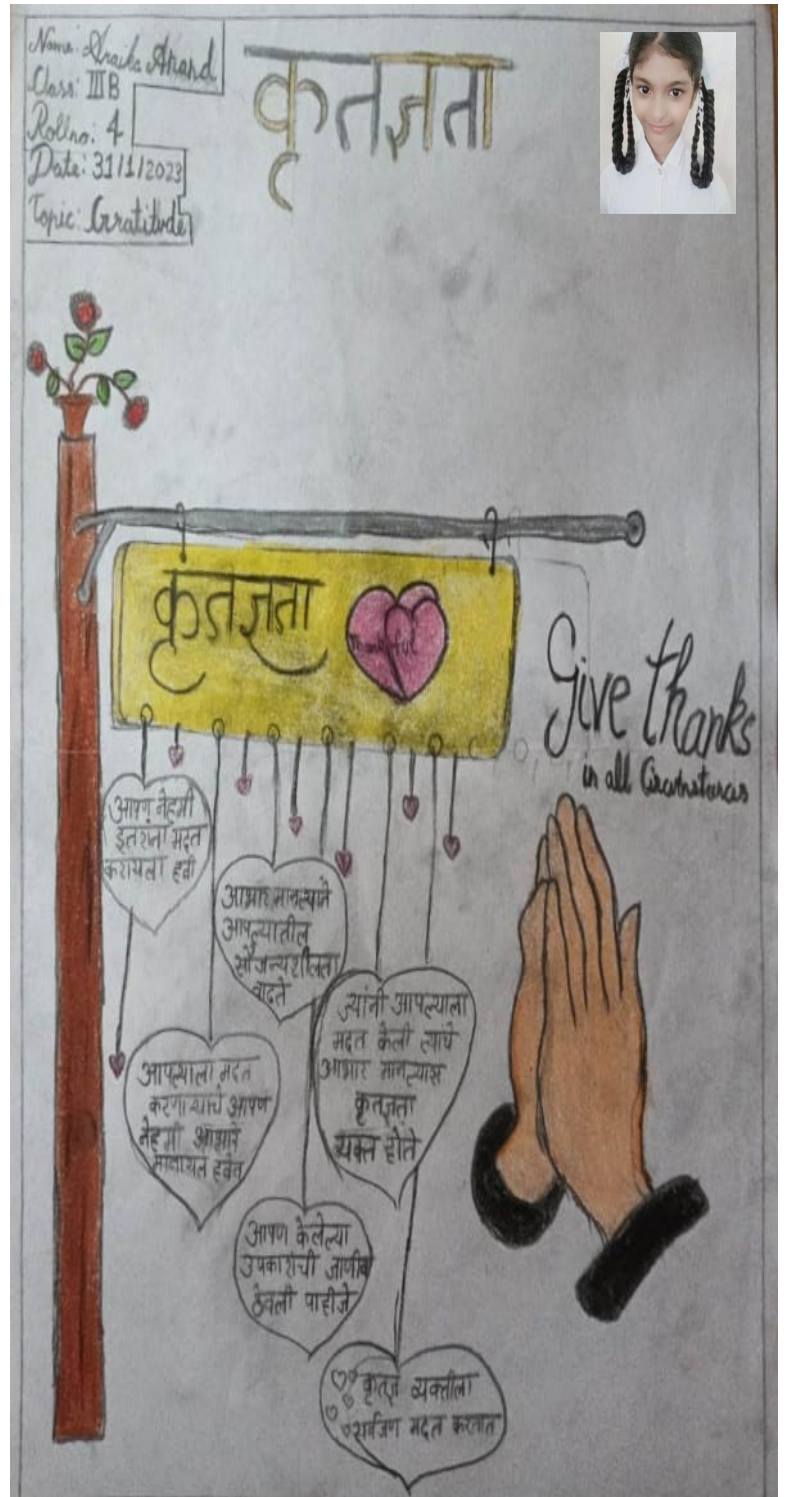 Name: Araika Anand
Class: III B
Rollno: 4
Date: 31/1/2023
Topic: Gratitude
कृतज्ञता
कृतज्ञता
Thankful
Give thanks
in all Circumstances
आपण नेहमी
इतरांना मदत
करायला हवी
आभार मानल्याने
आपल्यातील
सौजन्यशीलता
वाढते
ज्यांनी आपल्याला
मदत केली त्यांचे
आभार मानल्यास
कृतज्ञता
व्यक्त होते
आपल्याला मदत
करणाऱ्याचे आपण
नेहमी आभार
मानायला हवेत
आपण केलेल्या
उपकारांची जाणीव
ठेवली पाहीजे
कृतज्ञ व्यक्तीला
सर्वजण मदत करतात